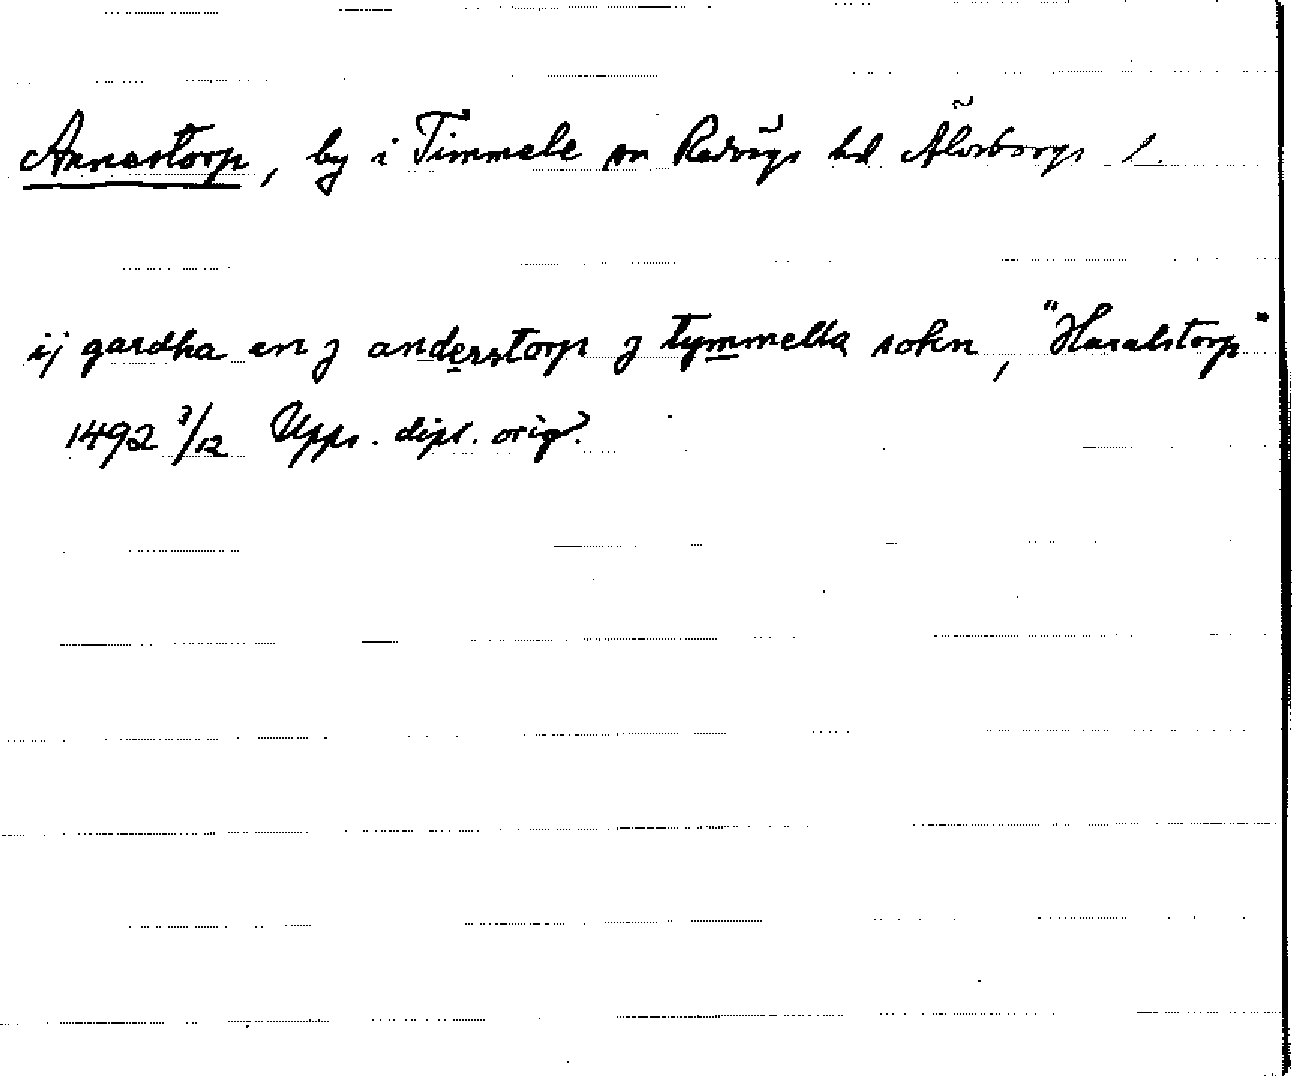 Annestorp, by i Timmele sn Redvägs hd Älvsborgs l.
ij gardha en j anderstorp j tymmella sokn, "Haralstorp"
1492 3/12 Upps. dipl. orig.